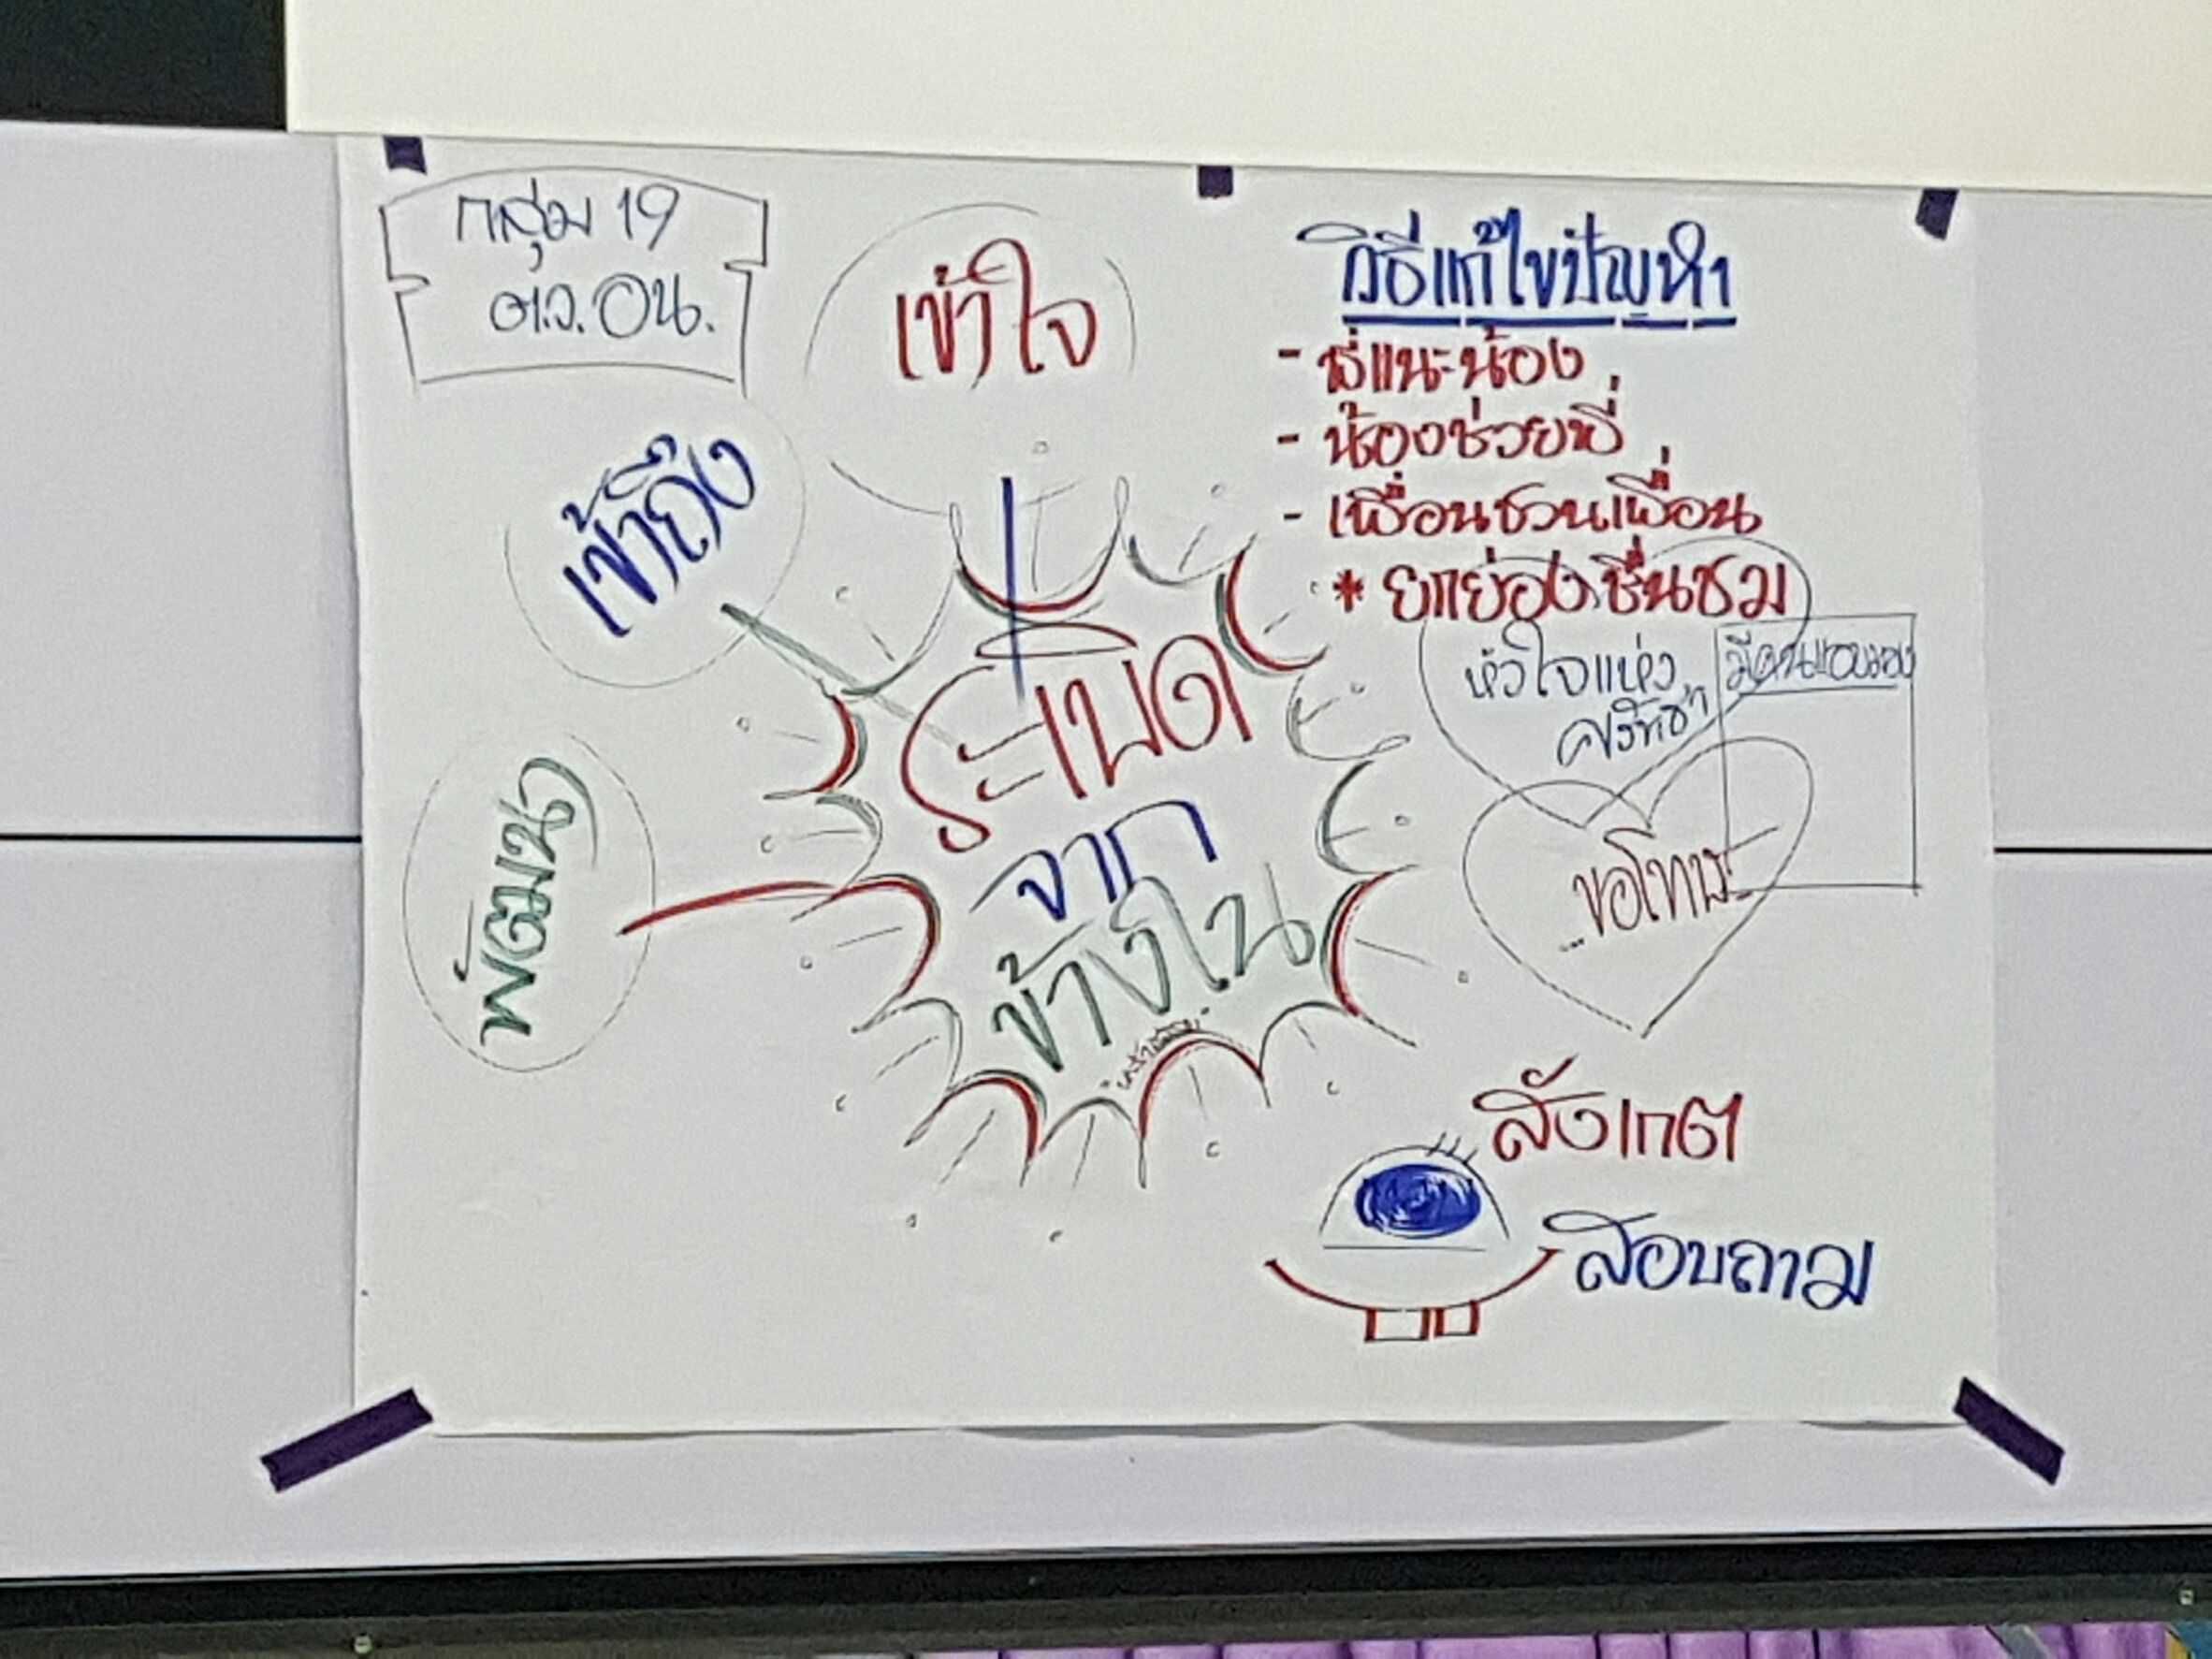 กลุ่ม 19
ต.ว. อน.
เข้าใจ
เข้าถึง
พัฒนา
ระเบิด
จาก
ข้างใน
วิธีแก้ไขปัญหา
- พี่แนะน้อง
- น้องช่วยพี่
- เพื่อนชวนเพื่อน
* ยกย่อง ชื่นชม
หัวใจแห่ง
ศรัทธา
มีคนแอบมอง
...ขอโทษ
สังเกต
สอบถาม